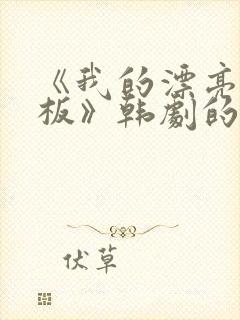 《我的漂亮
板》韩劇的
伏草